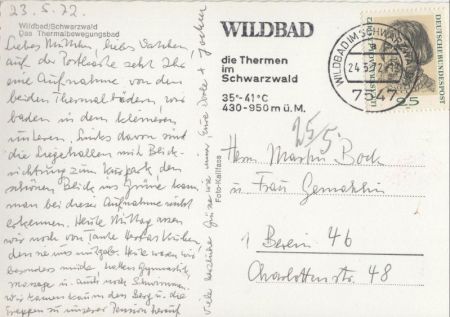 23.5.72.
Wildbad/Schwarzwald
Das Thermalbewegungsbad
Liebes Muttilein, liebes Vatilein,
auf der Postkarte seht Ihr
eine Aufnahme von den
beiden Thermalbädern, wir
baden in dem kleineren
unteren. Links davon sind
die Liegehallen mit Blick-
richtung zum Kurpark, den
schönen Blick ins Grüne kann
man bei dieser Aufnahme nicht
erkennen. Heute Mittag assen
wir noch von Tante Kuchen
den sie uns mitgab. Heute waren wir
besonders müde, hatten Gymnastik,
Massage u. auch noch Schwimmen.
Wir kamen kaum den Berg u. die
Treppen zu unserer Pension herauf
Viele herzliche Grüsse von Eure Dorle + Jochen
WILDBAD
die Thermen
im
Schwarzwald
35°-41°C
430-950 m ü.M.
Foto-Kallfass
WILDBAD IM SCHWARZWALD
24.5.72
7547
DEUTSCHE BUNDESPOST
25
255
Herrn Martin Bock
u. Frau Gemahlin
1 Berlin 46
Charlottenstr. 48